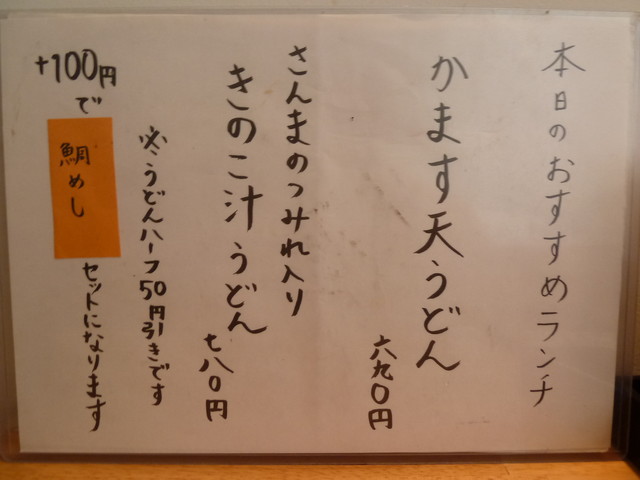 本日のおすすめランチ
かます天うどん
六九〇円
さんまのつみれ入り
きのこ汁うどん
七八〇円
※うどんハーフ50円引きです
+100円で
鯛めし
セットになります